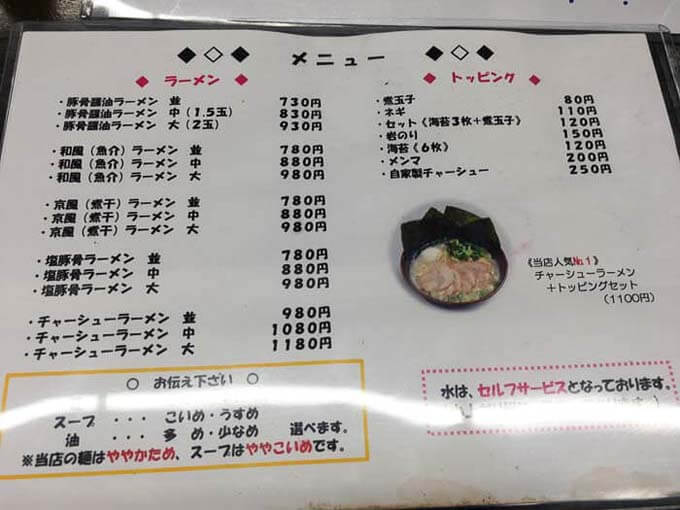 ◆◇◆ メニュー ◆◇◆
◆ ラーメン ◆
・豚骨醤油ラーメン 並 730円
・豚骨醤油ラーメン 中(1.5玉) 830円
・豚骨醤油ラーメン 大(2玉) 930円
・和風(魚介)ラーメン 並 780円
・和風(魚介)ラーメン 中 880円
・和風(魚介)ラーメン 大 980円
・京風(煮干)ラーメン 並 780円
・京風(煮干)ラーメン 中 880円
・京風(煮干)ラーメン 大 980円
・塩豚骨ラーメン 並 780円
・塩豚骨ラーメン 中 880円
・塩豚骨ラーメン 大 980円
・チャーシューラーメン 並 980円
・チャーシューラーメン 中 1080円
・チャーシューラーメン 大 1180円
○ お伝え下ざい ○
スープ ・・・ こいめ・うすめ
油 ・・・ 多 め・少なめ 選べます。
※当店の麺はややかため、スープはややこいめです。
◆ トッピング ◆
・煮玉子 80円
・ネギ 110円
・セット《海苔3枚+煮玉子》 120円
・岩のり 150円
・海苔《6枚》 120円
・メンマ 200円
・自家製チャーシュー 250円
《当店人気№1》
チャーシューラーメン
+トッピングセット
(1100円)
水は、セルフサービスとなっております。